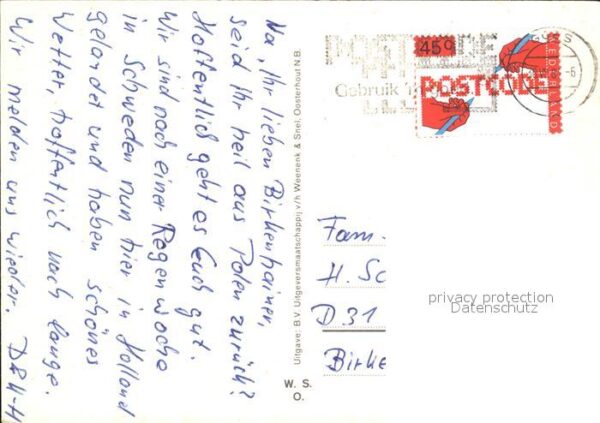 Na, Ihr lieben Birkenhainer,
seid Ihr heil aus Polen zurück?
Hoffentlich geht es Euch gut.
Wir sind nach einer Regenwoche
in Schweden nun hier in Holland
gelandet und haben schönes
Wetter, hoffentlich noch lange.
Wir melden uns wieder. D&H-H
Uitgave: B.V. Uitgeversmaatschappij v/h Weenenk & Snel, Oosterhout N.B.
W. S.
O.
POSTCODE
Gebruik
45c
POSTCODE
NEDERLAND
Fam.
H. Sc
D 31
Birke
privacy protection
Datenschutz